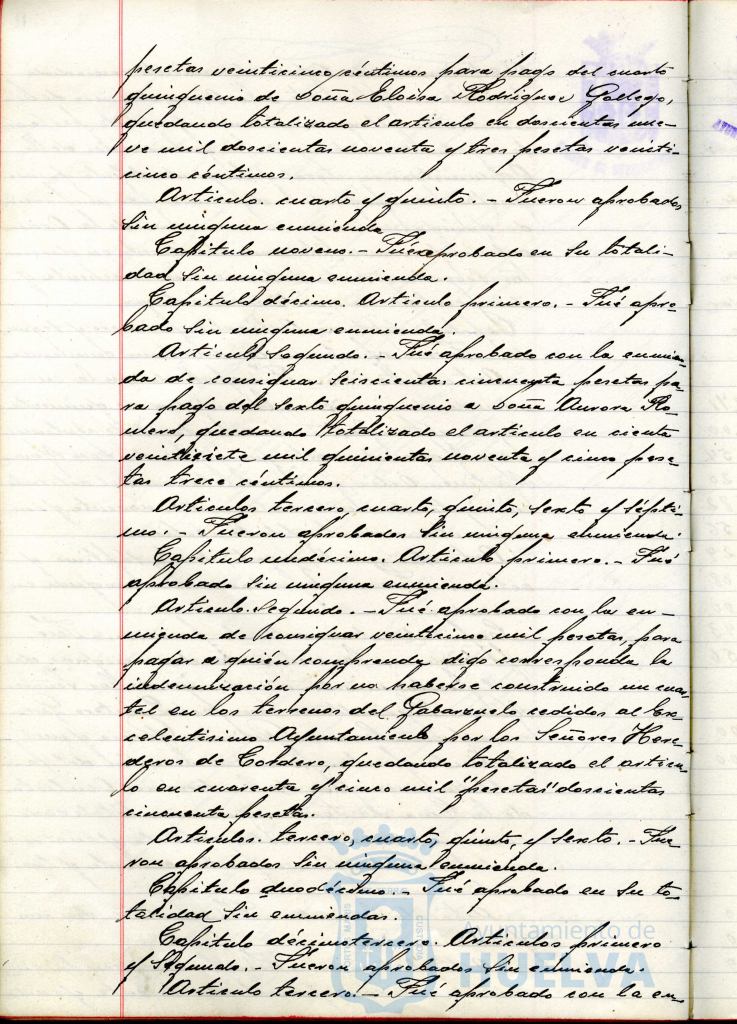 pesetas veinticinco céntimos para pago del cuarto
quinquenio de Doña Eloisa Rodriguez Gallego,
quedando totalizado el articulo en doscientas nue-
ve mil doscientas noventa y tres pesetas veinti-
cinco céntimos.
Articulo. cuarto y quinto. - Fueron aprobados
sin ninguna enmienda
Capitulo noveno. - Fué aprobado en su totali-
dad sin ninguna enmienda.
Capitulo décimo. Articulo primero. - Fué apro-
bado sin ninguna enmienda.
Articulo Segundo. - Fué aprobado con la enmien-
da de consignar seiscientas cincuenta pesetas pa-
ra pago del sexto quinquenio a Doña Aurora Ro-
mero, quedando totalizado el articulo en cienta
veintisiete mil quinientas noventa y cinco pese-
tas trece céntimos.
Articulos tercero, cuarto, quinto, sexto y sépti-
mo. - Fueron aprobados sin ninguna enmienda.
Capitulo undécimo. Articulo primero. - Fué
aprobado sin ninguna enmienda.
Articulo. Segundo. - Fué aprobado con la en-
mienda de consignar veinticinco mil pesetas, para
pagar a quién comprenda digo corresponda la
indemnización por no haberse construido un cuar-
tel en los terrenos del Gabarzuelo cedidos al Ex-
celentisimo Ayuntamiento por los Señores Here-
deros de Cordero, quedando totalizado el articu-
lo en cuarenta y cinco mil "pesetas" doscientas
cincuenta pesetas.
Articulos. tercero, cuarto, quinto, y sexto. - Fue
ron aprobados sin ninguna enmienda.
Capitulo duodécimo. - Fué aprobado en su to-
talidad sin enmiendas.
Capitulo décimotercero. Articulos primero
y Segundo. - Fueron aprobados sin enmienda.
Articulo tercero. - Fué aprobado con la en-
Ayuntamiento de
HUELVA